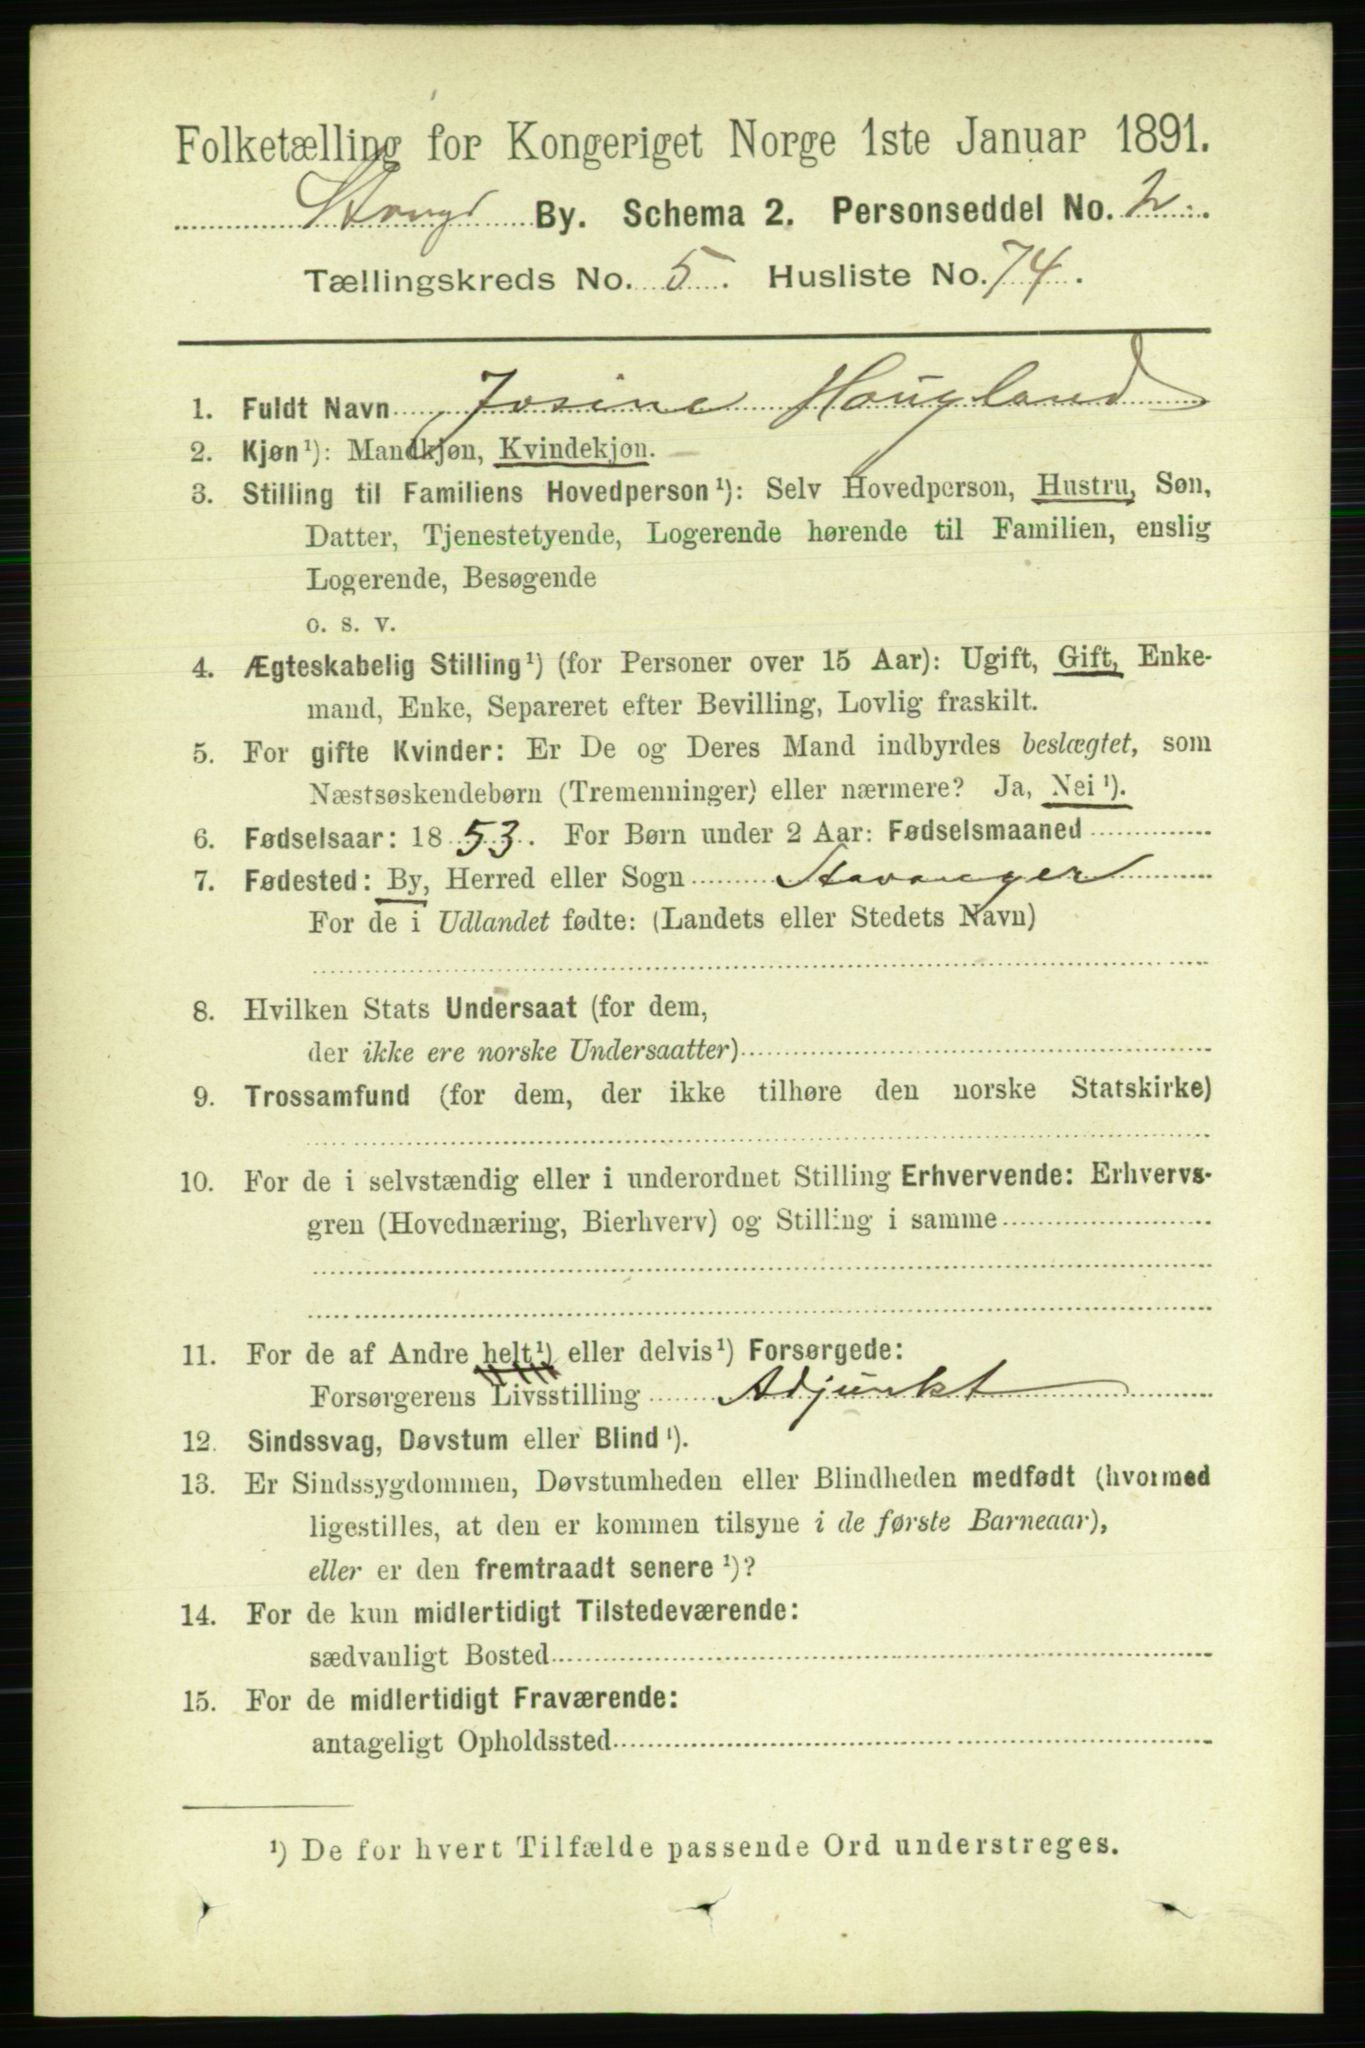 Folketælling for Kongeriget Norge 1ste Januar 1891.
By. Schema 2. Personseddel No. 2.
Tællingskreds No. 5. Husliste No. 74.
1. Fuldt Navn Josine Haugland
2. Kjøn¹): Mandkjøn, Kvindekjøn.
3. Stilling til Familiens Hovedperson¹): Selv Hovedperson, Hustru, Søn,
Datter, Tjenestetyende, Logerende hørende til Familien, enslig
Logerende, Besøgende
o. s. v.
4. Ægteskabelig Stilling¹) (for Personer over 15 Aar): Ugift, Gift, Enke-
mand, Enke, Separeret efter Bevilling, Lovlig fraskilt.
5. For gifte Kvinder: Er De og Deres Mand indbyrdes beslægtet, som
Næstsøskendebørn (Tremenninger) eller nærmere? Ja, Nei¹).
6. Fødselsaar: 1853. For Børn under 2 Aar: Fødselsmaaned
7. Fødested: By, Herred eller Sogn Stavanger
For de i Udlandet fødte: (Landets eller Stedets Navn)
8. Hvilken Stats Undersaat (for dem,
der ikke ere norske Undersaatter)
9. Trossamfund (for dem, der ikke tilhøre den norske Statskirke)
10. For de i selvstændig eller i underordnet Stilling Erhvervende: Erhvervs-
gren (Hovednæring, Bierhverv) og Stilling i samme
11. For de af Andre helt¹) eller delvis¹) Forsørgede:
Forsørgerens Livsstilling Adjunkt
12. Sindssvag, Døvstum eller Blind¹).
13. Er Sindssygdommen, Døvstumheden eller Blindheden medfødt (hvormed
ligestilles, at den er kommen tilsyne i de første Barneaar),
eller er den fremtraadt senere¹)?
14. For de kun midlertidigt Tilstedeværende:
sædvanligt Bosted
15. For de midlertidigt Fraværende:
antageligt Opholdssted
¹) De for hvert Tilfælde passende Ord understreges.